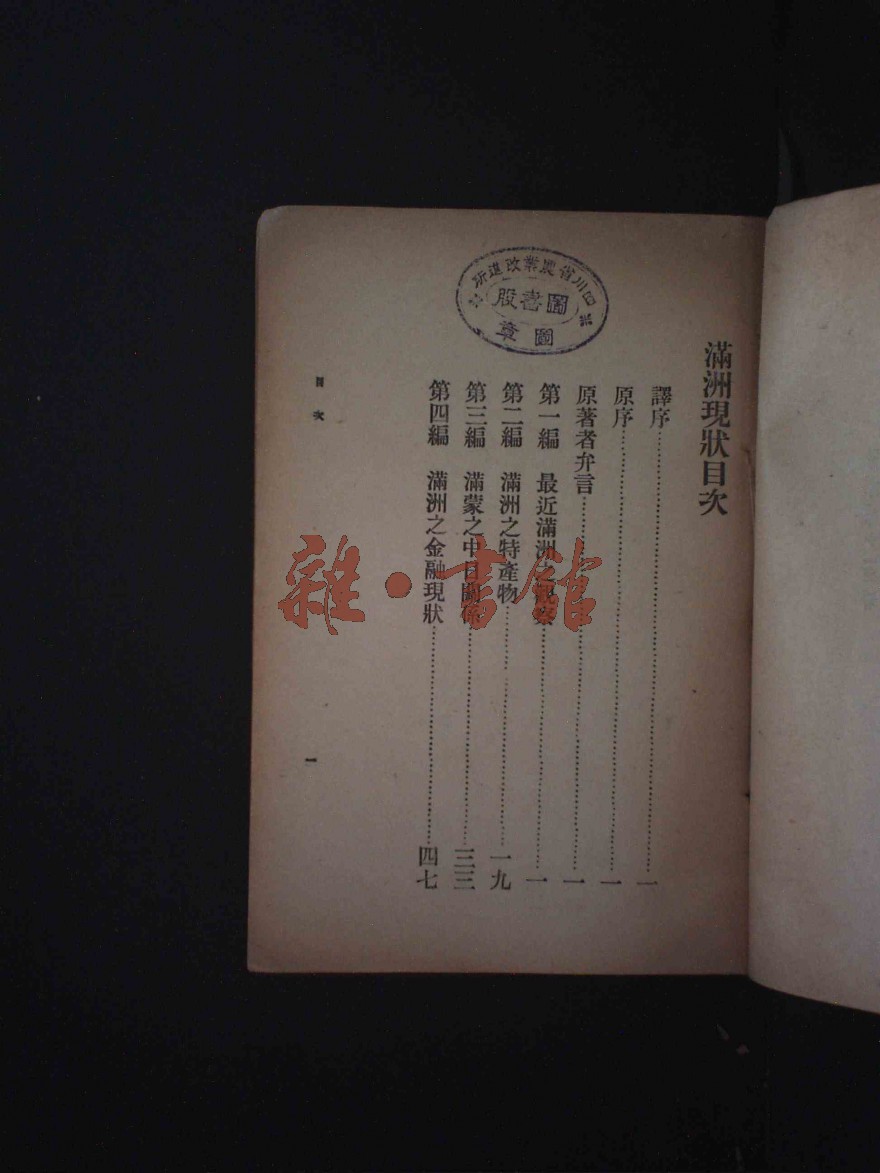 滿洲現狀目次
譯序…………一
原序…………一
原著者弁言…………一
第一編 最近滿洲之觀察…………一
第二編 滿洲之特產物…………一九
第三編 滿蒙之中日關係…………三三
第四編 滿洲之金融現狀…………四七
目次
一
四川省農業改進所
圖書股
圖章
雜·書館